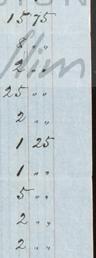 15 75
8 " "
2 " "
25 " "
2 " "
1 25
1 " "
5 " "
2 " "
2 " "